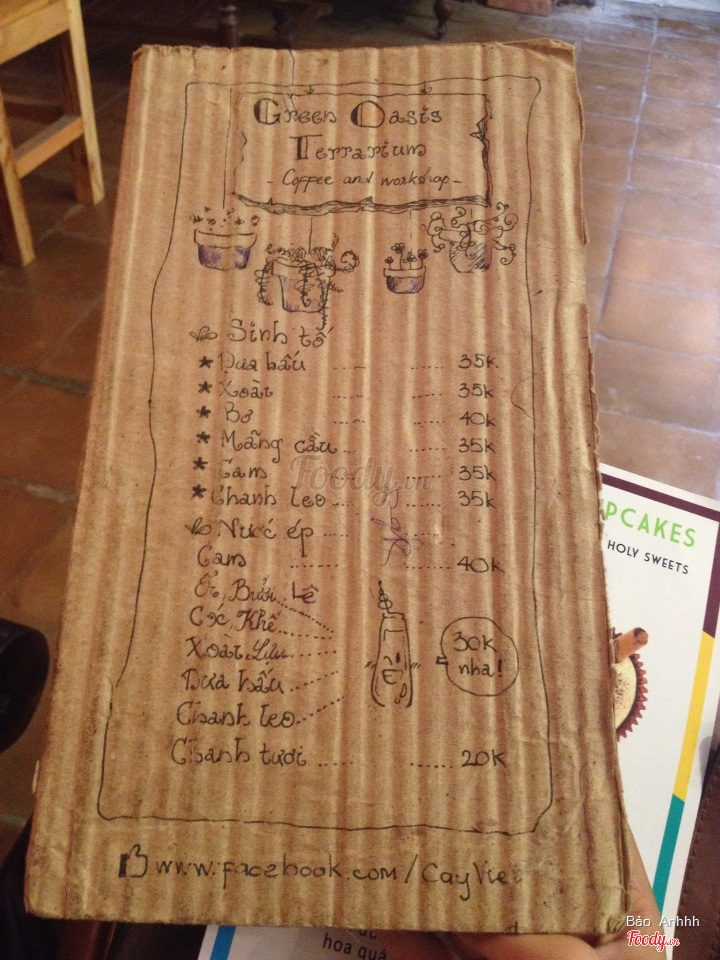 Green Oasis
Terrarium
- Coffee and workshop -
Sinh tố
* Dưa hấu ........ 35k.
* Xoài ........ 35k
* Bơ ........ 40k
* Mãng cầu ........ 35k
* Cam ........ 35k
* Chanh leo ........ 35k
Nước ép ........
Cam ........ 40k
Ổi, Bưởi, Lê
Cóc Khế
Xoài Lựu
Dưa hấu
Chanh leo
30k
nha!
Chanh tươi ........ 20k
www.facebook.com/CayViet
PCAKES
HOLY SWEETS
hoa quả
Foody.vn
Bảo Anhhh
Foody.vn